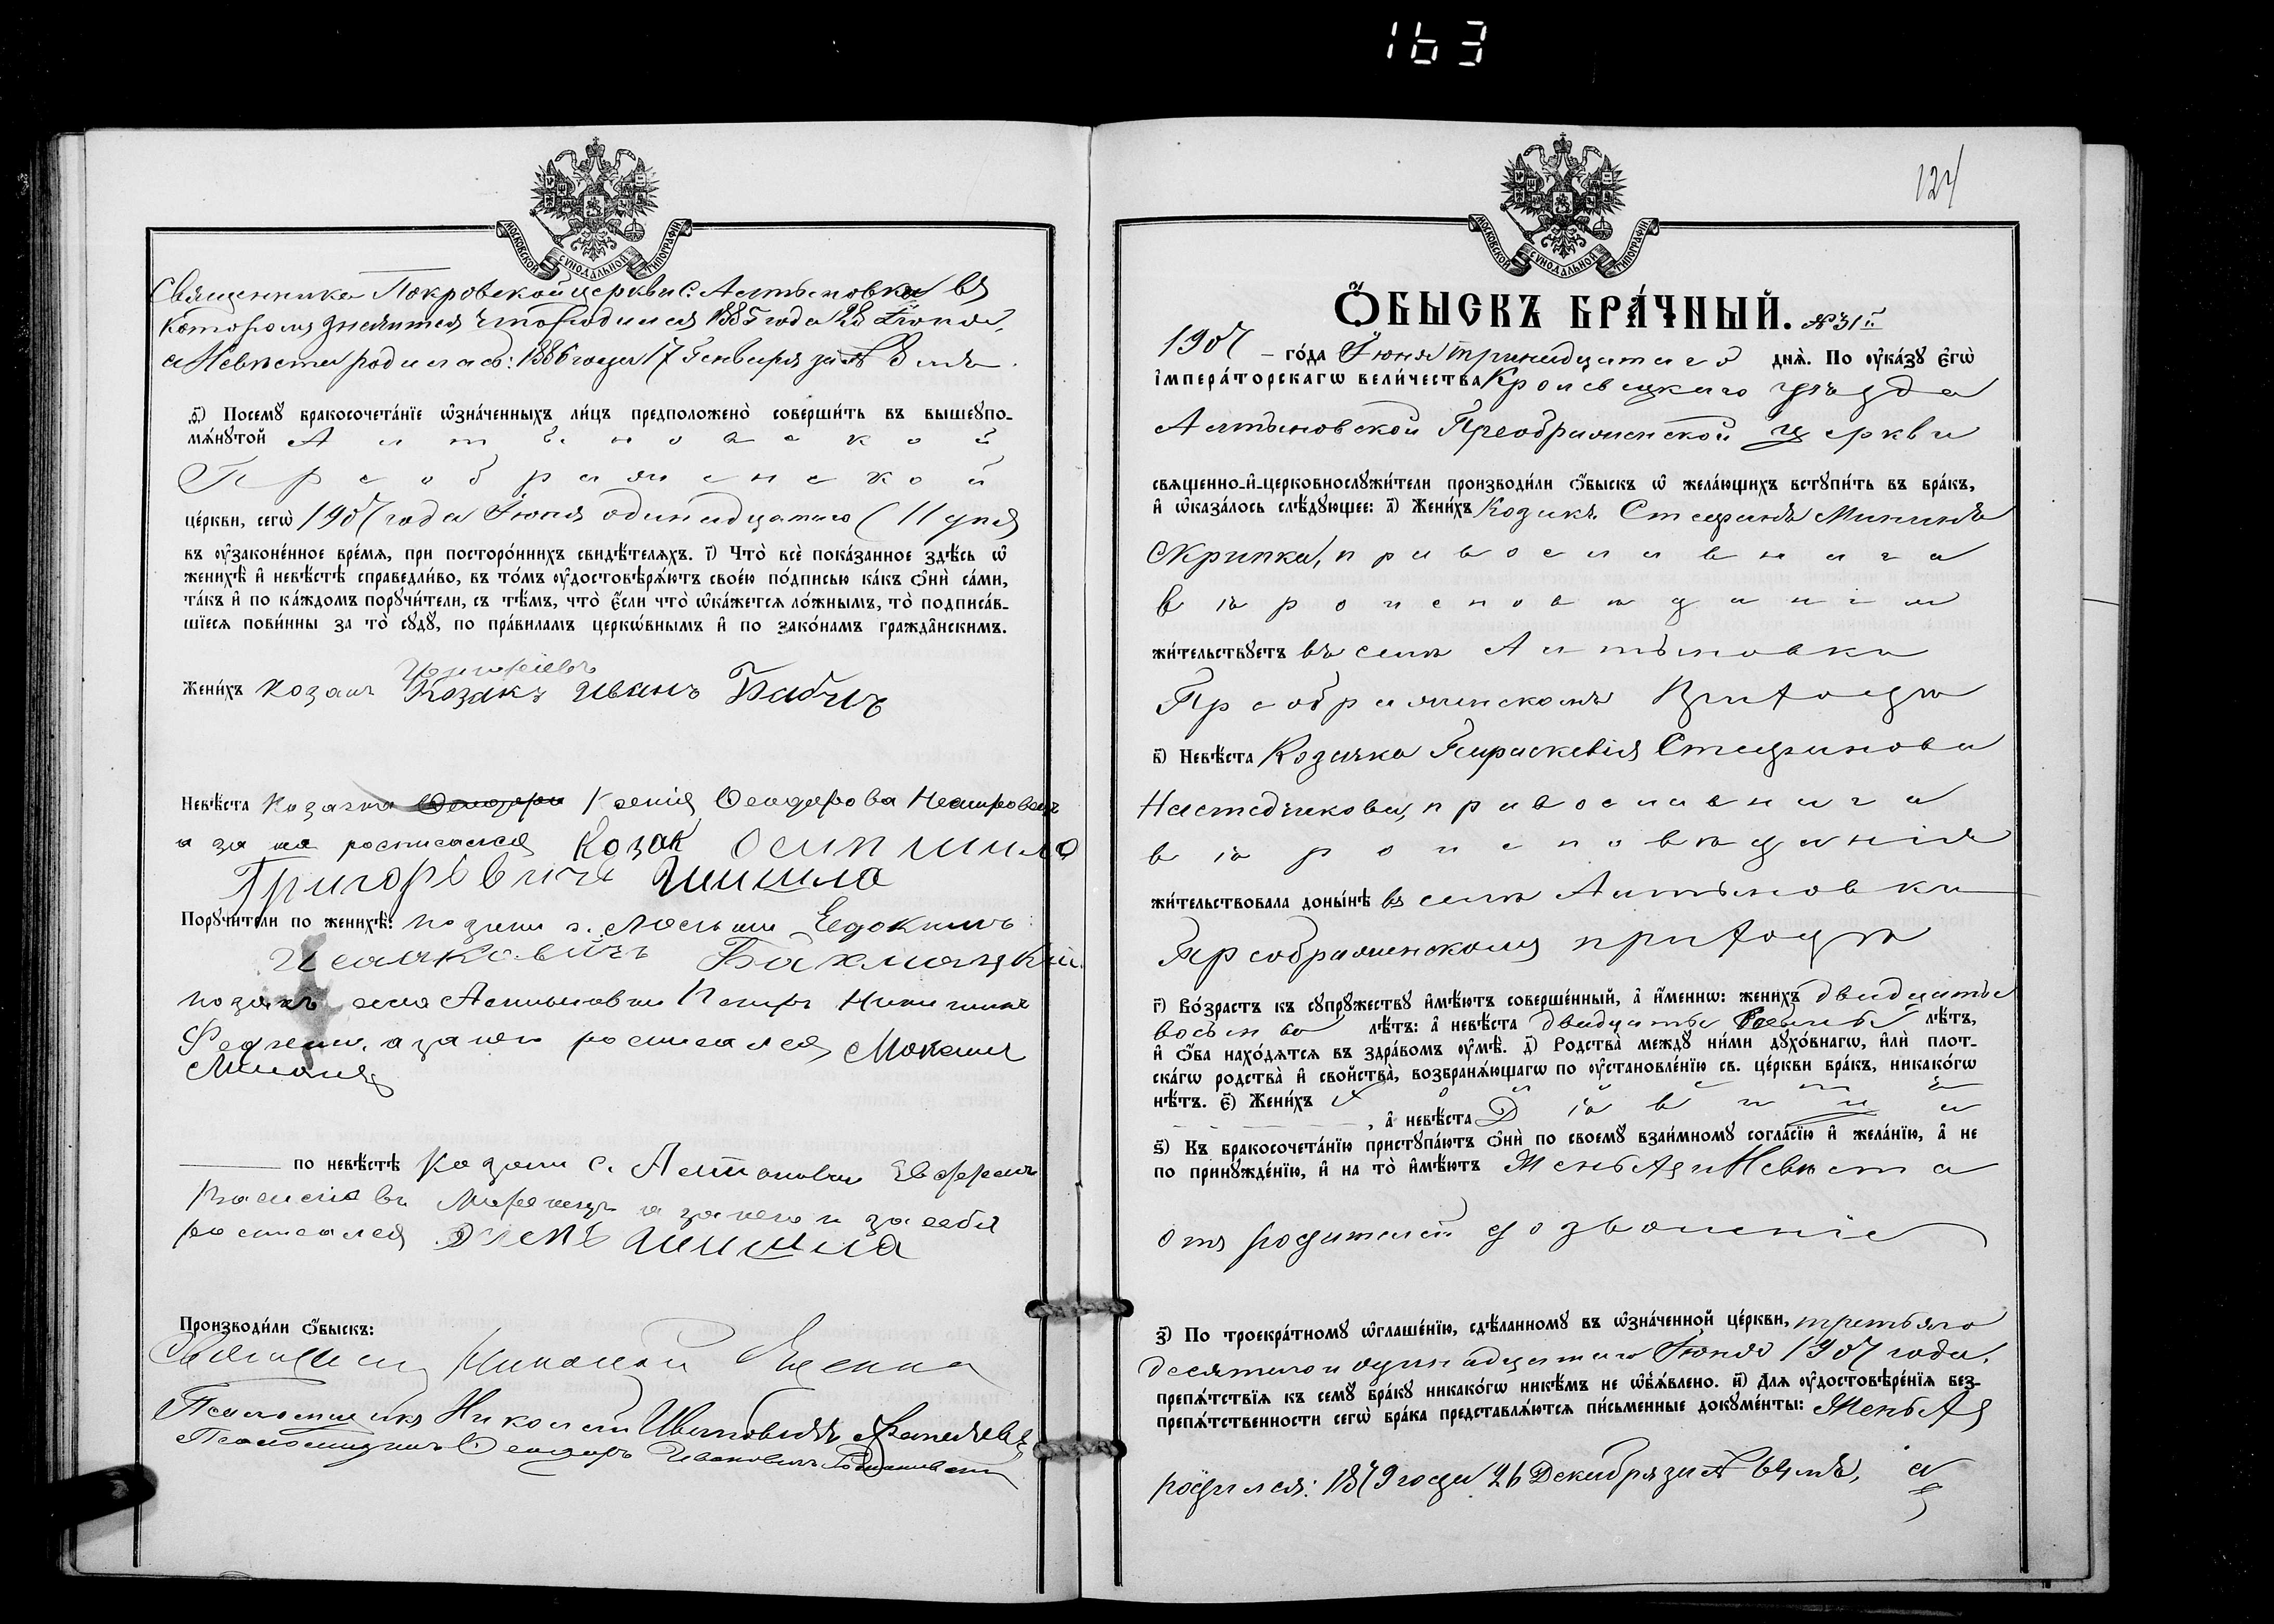 163
МОСКОВСКОЙ СУНОДАЛЬНОЙ ТИПОГРАФІИ.
Священника Покровской церкви с. Алтыновки въ
которомъ значится что родился 1885 года 28 Іюня,
а Невѣста родилась: 1886 года 17 Генваря за № 8 мъ.
ѳ҃) Посемꙋ̀ бракосочета́нїе ѡ҆зна́ченныхъ ли́цъ предположено̀ соверши́ть въ вышеꙋпо-
мѧ́нꙋтой Алтыновской
Преображенской
це́ркви, сегѡ̀ 1907 года Іюня одинадцатаго (11 дня
въ ᲂу҆зако́ненное вре́мѧ, при посторо́ннихъ свидѣ́телѧхъ. і҃) Что̀ всѐ пока́занное здѣ́сь ѡ҆
женихѣ̀ и҆ невѣ́стѣ справедли́во, въ то́мъ ᲂу҆достовѣрѧ́ютъ свое́ю по́дписью ка́къ ѻ҆нѝ са́ми,
та́къ и҆ по ка́ждомъ порꙋчи́тели, съ тѣ́мъ, что̀ є҆́сли что̀ ѡ҆ка́жетсѧ ло́жнымъ, то̀ подписа́в-
шїесѧ пови́нны за то̀ сꙋдꙋ̀, по пра́виламъ церко́внымъ и҆ по зако́намъ гражда́нскимъ.
Жени́хъ козакъ Козакъ Иванъ Бабичъ
Невѣ́ста козачка Ксенія Ѳеодорова
а за нея росписался Козак Осип Шишла
Григорьевичъ Шишла
Порꙋчи́тели по женихѣ̀: Евдокимъ
Исааковичъ Бахмацкій
козакъ села Алтыновки Петръ Никитинъ
а за него росписался Мокаиъ
по невѣ́стѣ Козакъ с. Алтыновки
а за него и за себя
росписался Шишла
Производи́ли ѻ҆́быскъ:
Священникъ Николай
Псаломщикъ Николай Ивановичъ
Псаломщикъ Ѳеодоръ Ивановичъ
124
МОСКОВСКОЙ СУНОДАЛЬНОЙ ТИПОГРАФІИ.
Ѻ҆БЫСКЪ БРА́ЧНЫЙ. № 31й
1907 го́да Іюня тринадцатаго днѧ̀. По ᲂу҆ка́зꙋ є҆гѡ̀
і҆мпера́торскагѡ вели́чества Кролевецкаго уѣзда
Алтыновской Преображенской церкви
свѧщенно-и҆-церковнослꙋжи́тели производи́ли ѻ҆́быскъ ѡ҆ жела́ющихъ встꙋпи́ть въ бра́къ,
и҆ ѡ҆каза́лось слѣ́дꙋющее: а҃) Жени́хъ Козакъ Стефанъ Мининъ
Скрипка, православнаго
вѣроисповѣданія
жи́тельствꙋетъ въ селѣ Алтыновкѣ
Преображенскомъ Приходѣ
в҃) Невѣ́ста Козачка Параскевія Стефанова
православнаго
вѣроисповѣданія
жи́тельствовала доны́нѣ въ селѣ Алтыновкѣ
Преображенскомъ приходѣ
г҃) Во́зрастъ къ сꙋпрꙋ́жествꙋ и҆мѣ́ютъ соверше́нный, а҆ и҆́менно: жени́хъ двадцать
восьмь лѣ́тъ: а҆ невѣ́ста двадцать лѣ́тъ,
и҆ ѻ҆́ба нахо́дѧтсѧ въ здра́вомъ ᲂу҆мѣ̀. д҃) Родства̀ междꙋ̀ ни́ми дꙋхо́внагѡ, и҆лѝ плот-
ска́гѡ родства̀ и҆ сво́йства, возбранѧ́ющагѡ по ᲂу҆становле́нїю св. це́ркви бра́къ, никако́гѡ
нѣ́тъ. є҃) Жени́хъ Холостъ
, а҆ невѣ́ста Дѣвица
ѕ҃) Къ бракосочета́нїю пристꙋпа́ютъ ѻ҆нѝ по своемꙋ̀ взаи́мномꙋ согла́сїю и҆ жела́нїю, а҆ не
по принꙋжде́нїю, и҆ на то̀ и҆мѣ́ютъ Женихъ и Невѣста
отъ родителей дозволеніе
з҃) По троекра́тномꙋ ѡ҆глаше́нїю, сдѣ́ланномꙋ въ ѡ҆зна́ченной це́ркви, третьяго
десятаго и одинадцатаго Іюня 1907 года,
препѧ́тствїѧ къ семꙋ̀ бра́кꙋ никако́гѡ никѣ́мъ не ѡ҆б̾ѧ́влено. и҃) Длѧ ᲂу҆достовѣре́нїѧ без-
препѧ́тственности сегѡ̀ бра́ка представлѧ́ютсѧ пи́сьменные докꙋме́нты: Женихъ
родился: 1879 года 26 Декабря за № 64 мъ, а